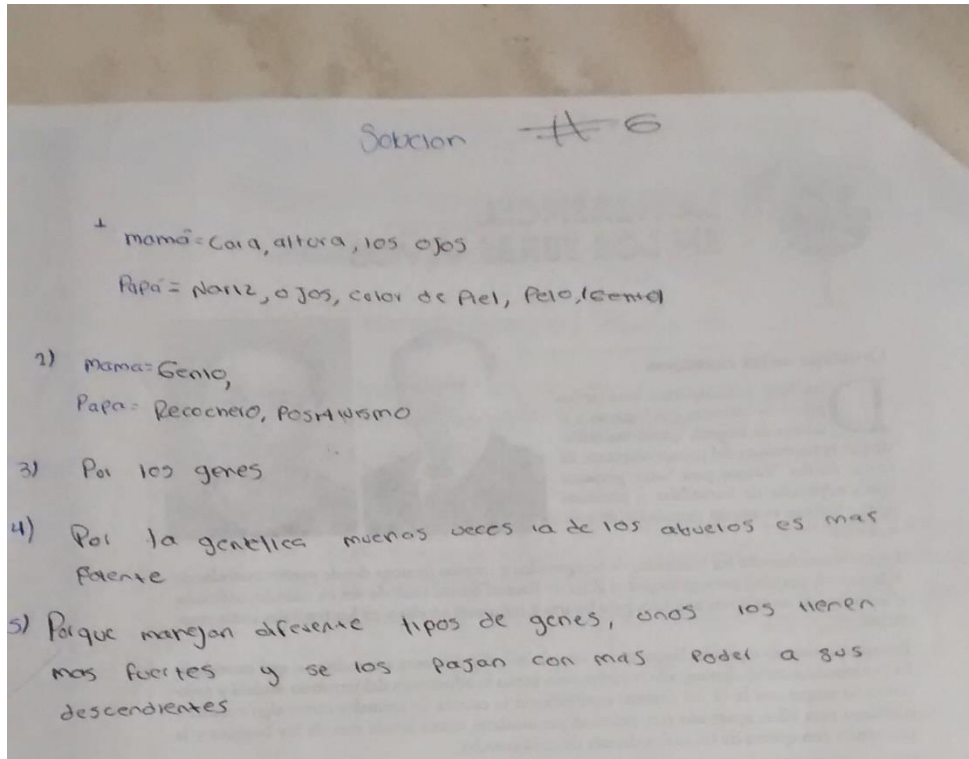 Solucion # 6
1 mamá = Cara, altura, los ojos
Papá = Nariz, ojos, color de Piel, Pelo,
2) mama = Genio,
Papa = Recochero, Positivismo
3) Por los genes
4) Por la genetica muchas veces la de los abuelos es mas
Potente
5) Porque manejan diferente tipos de genes, unos los tienen
mas fuertes y se los pasan con mas Poder a sus
descendientes